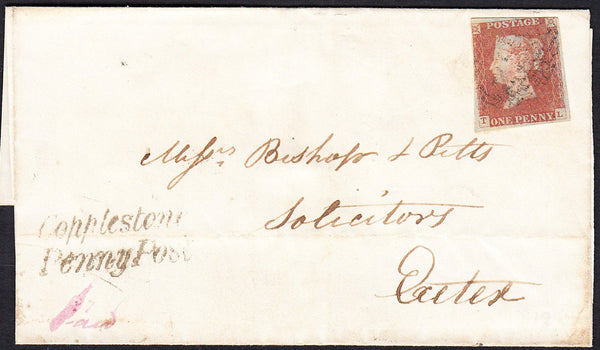 POSTAGE
T ONE PENNY L
Messrs Bishop & Pitts
Solicitors
Exeter
Copplestone
Penny Post
Paid